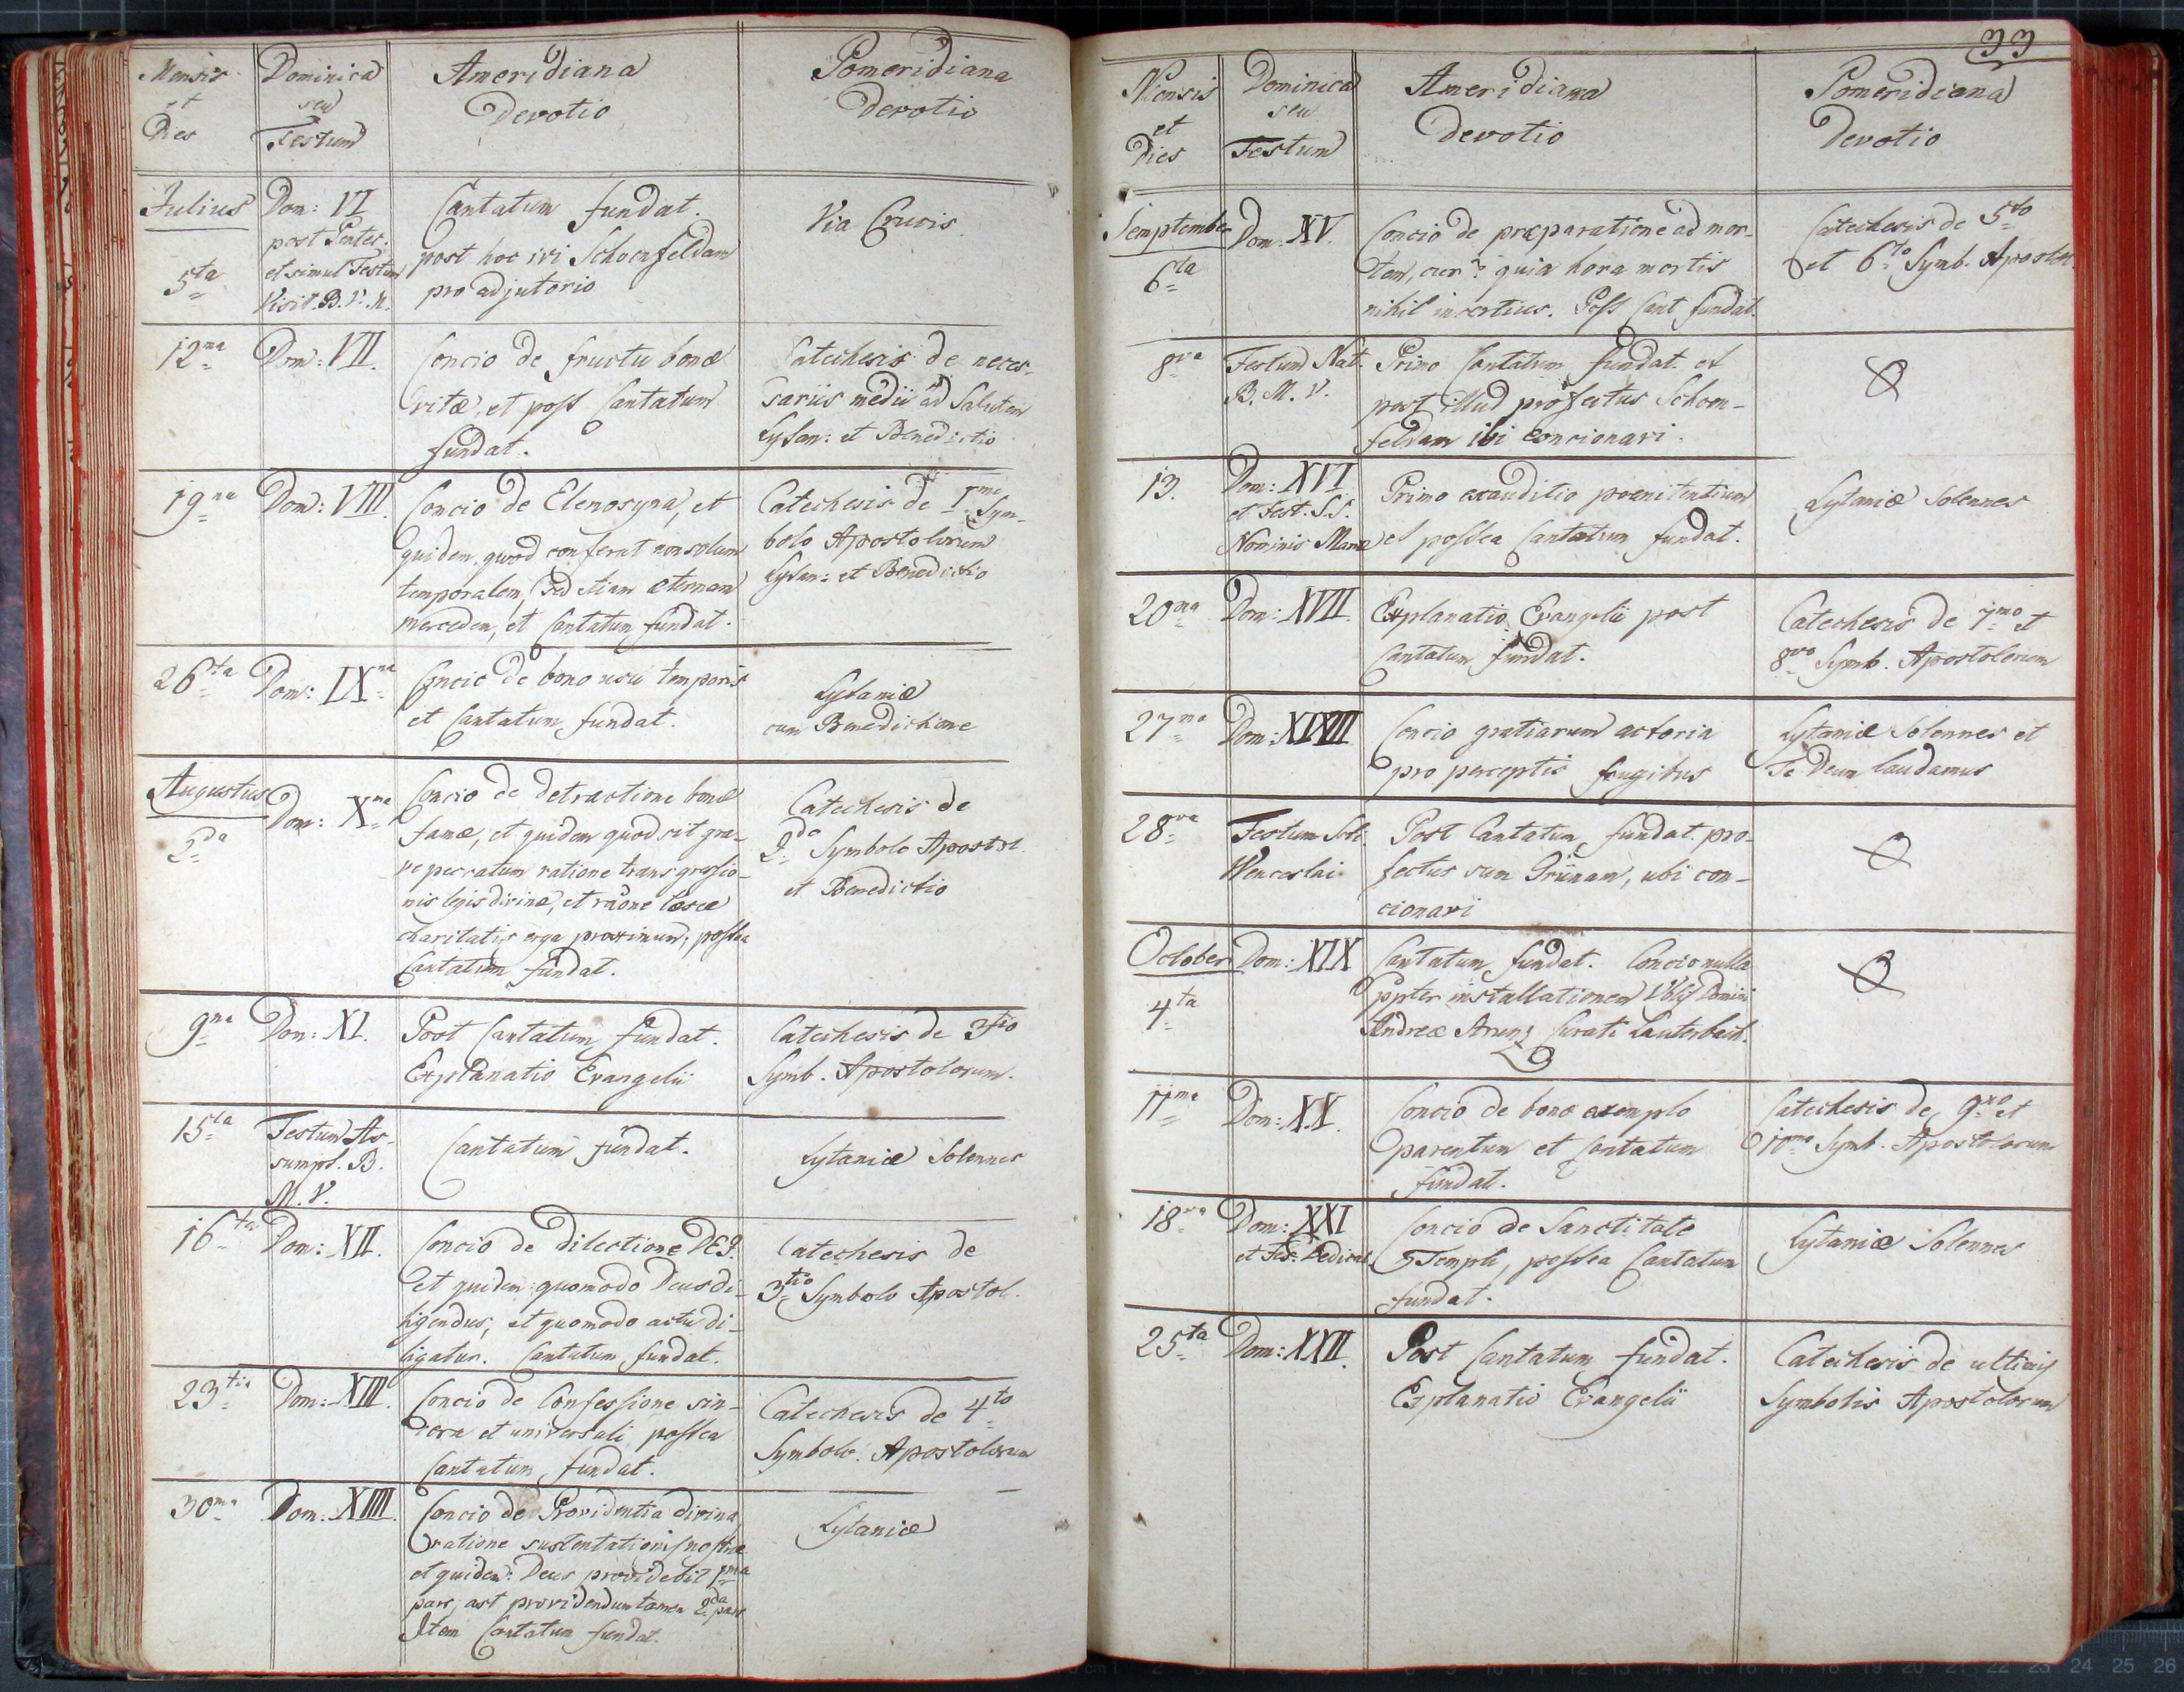 Mensis
et
Dies
Dominica
seu
Festum
Ameridiana
Devotio
Pomeridiana
Devotio
Julius
5ta
Dom: VI
post Pentec.
et simul Festum
Visit. B. V. M.
Cantatum fundat.
post hoc ivi Schoenfeldam
pro adjutorio
Via Crucis
12ma
Dom: VII.
Concio de fructu bonæ
vitæ, et post Cantatum
fundat.
Catechesis de neces-
sariis medii ad Salutem
Lytan: et Benedictio
19na
Dom: VIII
Concio de Elemosyna, et
quidem quod conferat non solum
temporalem, sed etiam æternam
mercedem, et Cantatum fundat.
Catechesis de 1mo Sym-
bolo Apostolorum
Lytan: et Benedictio
26ta
Dom: IXna
Concio de bono usu temporis
et Cantatum fundat.
Lytaniæ
cum Benedictione
Augustus
2da
Dom: Xma
Concio de detractione bonæ
famæ, et quidem quod sit gra-
ve peccatum ratione transgressio-
nis legis divinæ, et raone læsæ
charitatis erga proximum; postea
Cantatum fundat.
Catechesis de
2do Symbolo Apostol.
et Benedictio
9na
Dom: XI.
Post Cantatum fundat.
Explanatio Evangelii
Catechesis de 3tio
Symb. Apostolorum.
15ta
Festum As-
sumpt. B.
M. V.
Cantatum fundat.
Lytaniæ Solennes
16ta
Dom: XII.
Concio de dilectione DEI
et quidem: quomodo Deus di-
ligendus, et quomodo actu di-
ligatur. Cantatum fundat.
Catechesis de
3tio Symbolo Apostol.
23tia
Dom: XIII.
Concio de Confessione sin-
cera et universali postea
Cantatum fundat.
Catechesis de 4to
Symbolo Apostolorum
30ma
Dom: XIIII.
Concio de Providentia divina
ratione sustentationis nostræ
et quidem: Deus providebit 1ma
pars, ast providendum tamen 2da pars
Item Cantatum fundat.
Lytaniæ
33
Mensis
et
Dies
Dominica
seu
Festum
Ameridiana
Devotio
Pomeridiana
Devotio
Semptember
6ta
Dom: XV.
Concio de præparatione ad mor-
tem, cur? quia hora mortis
nihil incertius. Post Cant fundat.
Catechesis de 5to
et 6to Symb. Apostol.
8va
Festum Nat.
B. M. V.
Primo Cantatum fundat. et
post illud profectus Schoen-
feldam ibi concionavi.
13.
Dom: XVI
et Fest. S.S.
Nominis Mariæ
Primo exauditio poenitentium
et postea Cantatum fundat.
Lytaniæ Solennes
20ma
Dom: XVII.
Explanatio Evangelii post
Cantatum fundat.
Catechesis de 7mo et
8vo Symb. Apostolorum
27ma
Dom: XVIII
Concio gratiarum actoria
pro perceptis frugibus
Lytaniæ Solennes et
Te Deum laudamus
28va
Festum Scti.
Wenceslai
Post Cantatum fundat. pro-
fectus sum Grünam, ubi con-
cionavi
October
4ta
Dom: XIX
Cantatum fundat. Concio nulla
ppter installationem Domini
Andreæ Curati Lauterbach.
11ma
Dom: XX.
Concio de bono exemplo
parentum et Cantatum
fundat.
Catechesis de 9no et
10mo Symb. Apostolorum
18va
Dom: XXI
et Fest: Dedicat.
Concio de Sanctitate
Templi, postea Cantatum
fundat.
Lytaniæ Solennes
25ta
Dom: XXII.
Post Cantatum fundat.
Explanatio Evangelii
Catechesis de ultimis
Symbolis Apostolorum